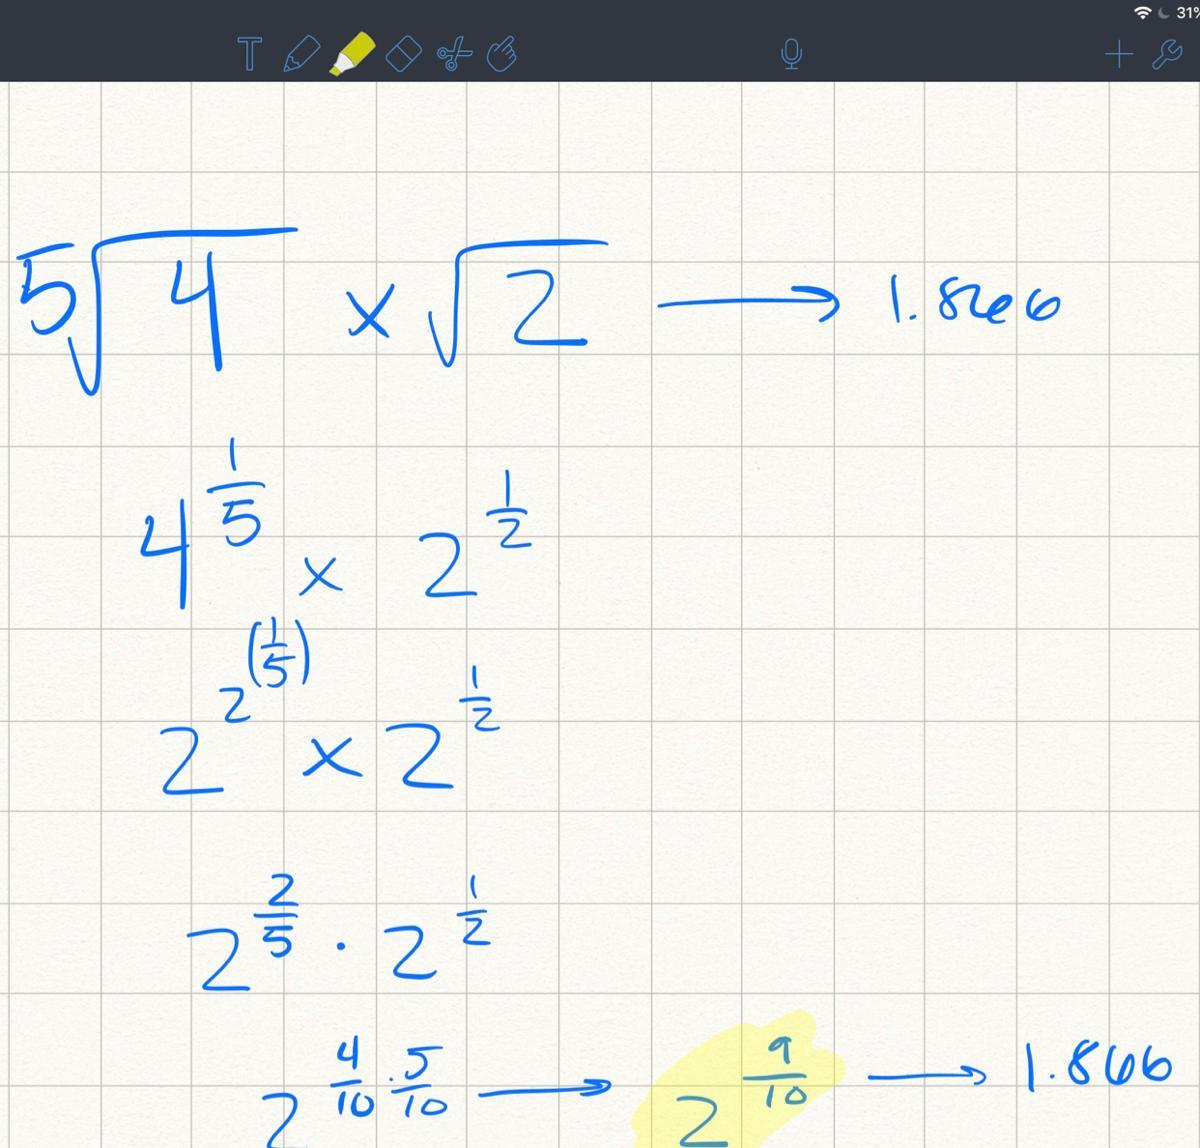 31%
T
⁵√4 x √2 → 1.866
4^(1/5) x 2^(1/2)
2^2^(1/5) x 2^(1/2)
2^(2/5) · 2^(1/2)
2^(4/10 · 5/10) → 2^(9/10) → 1.866